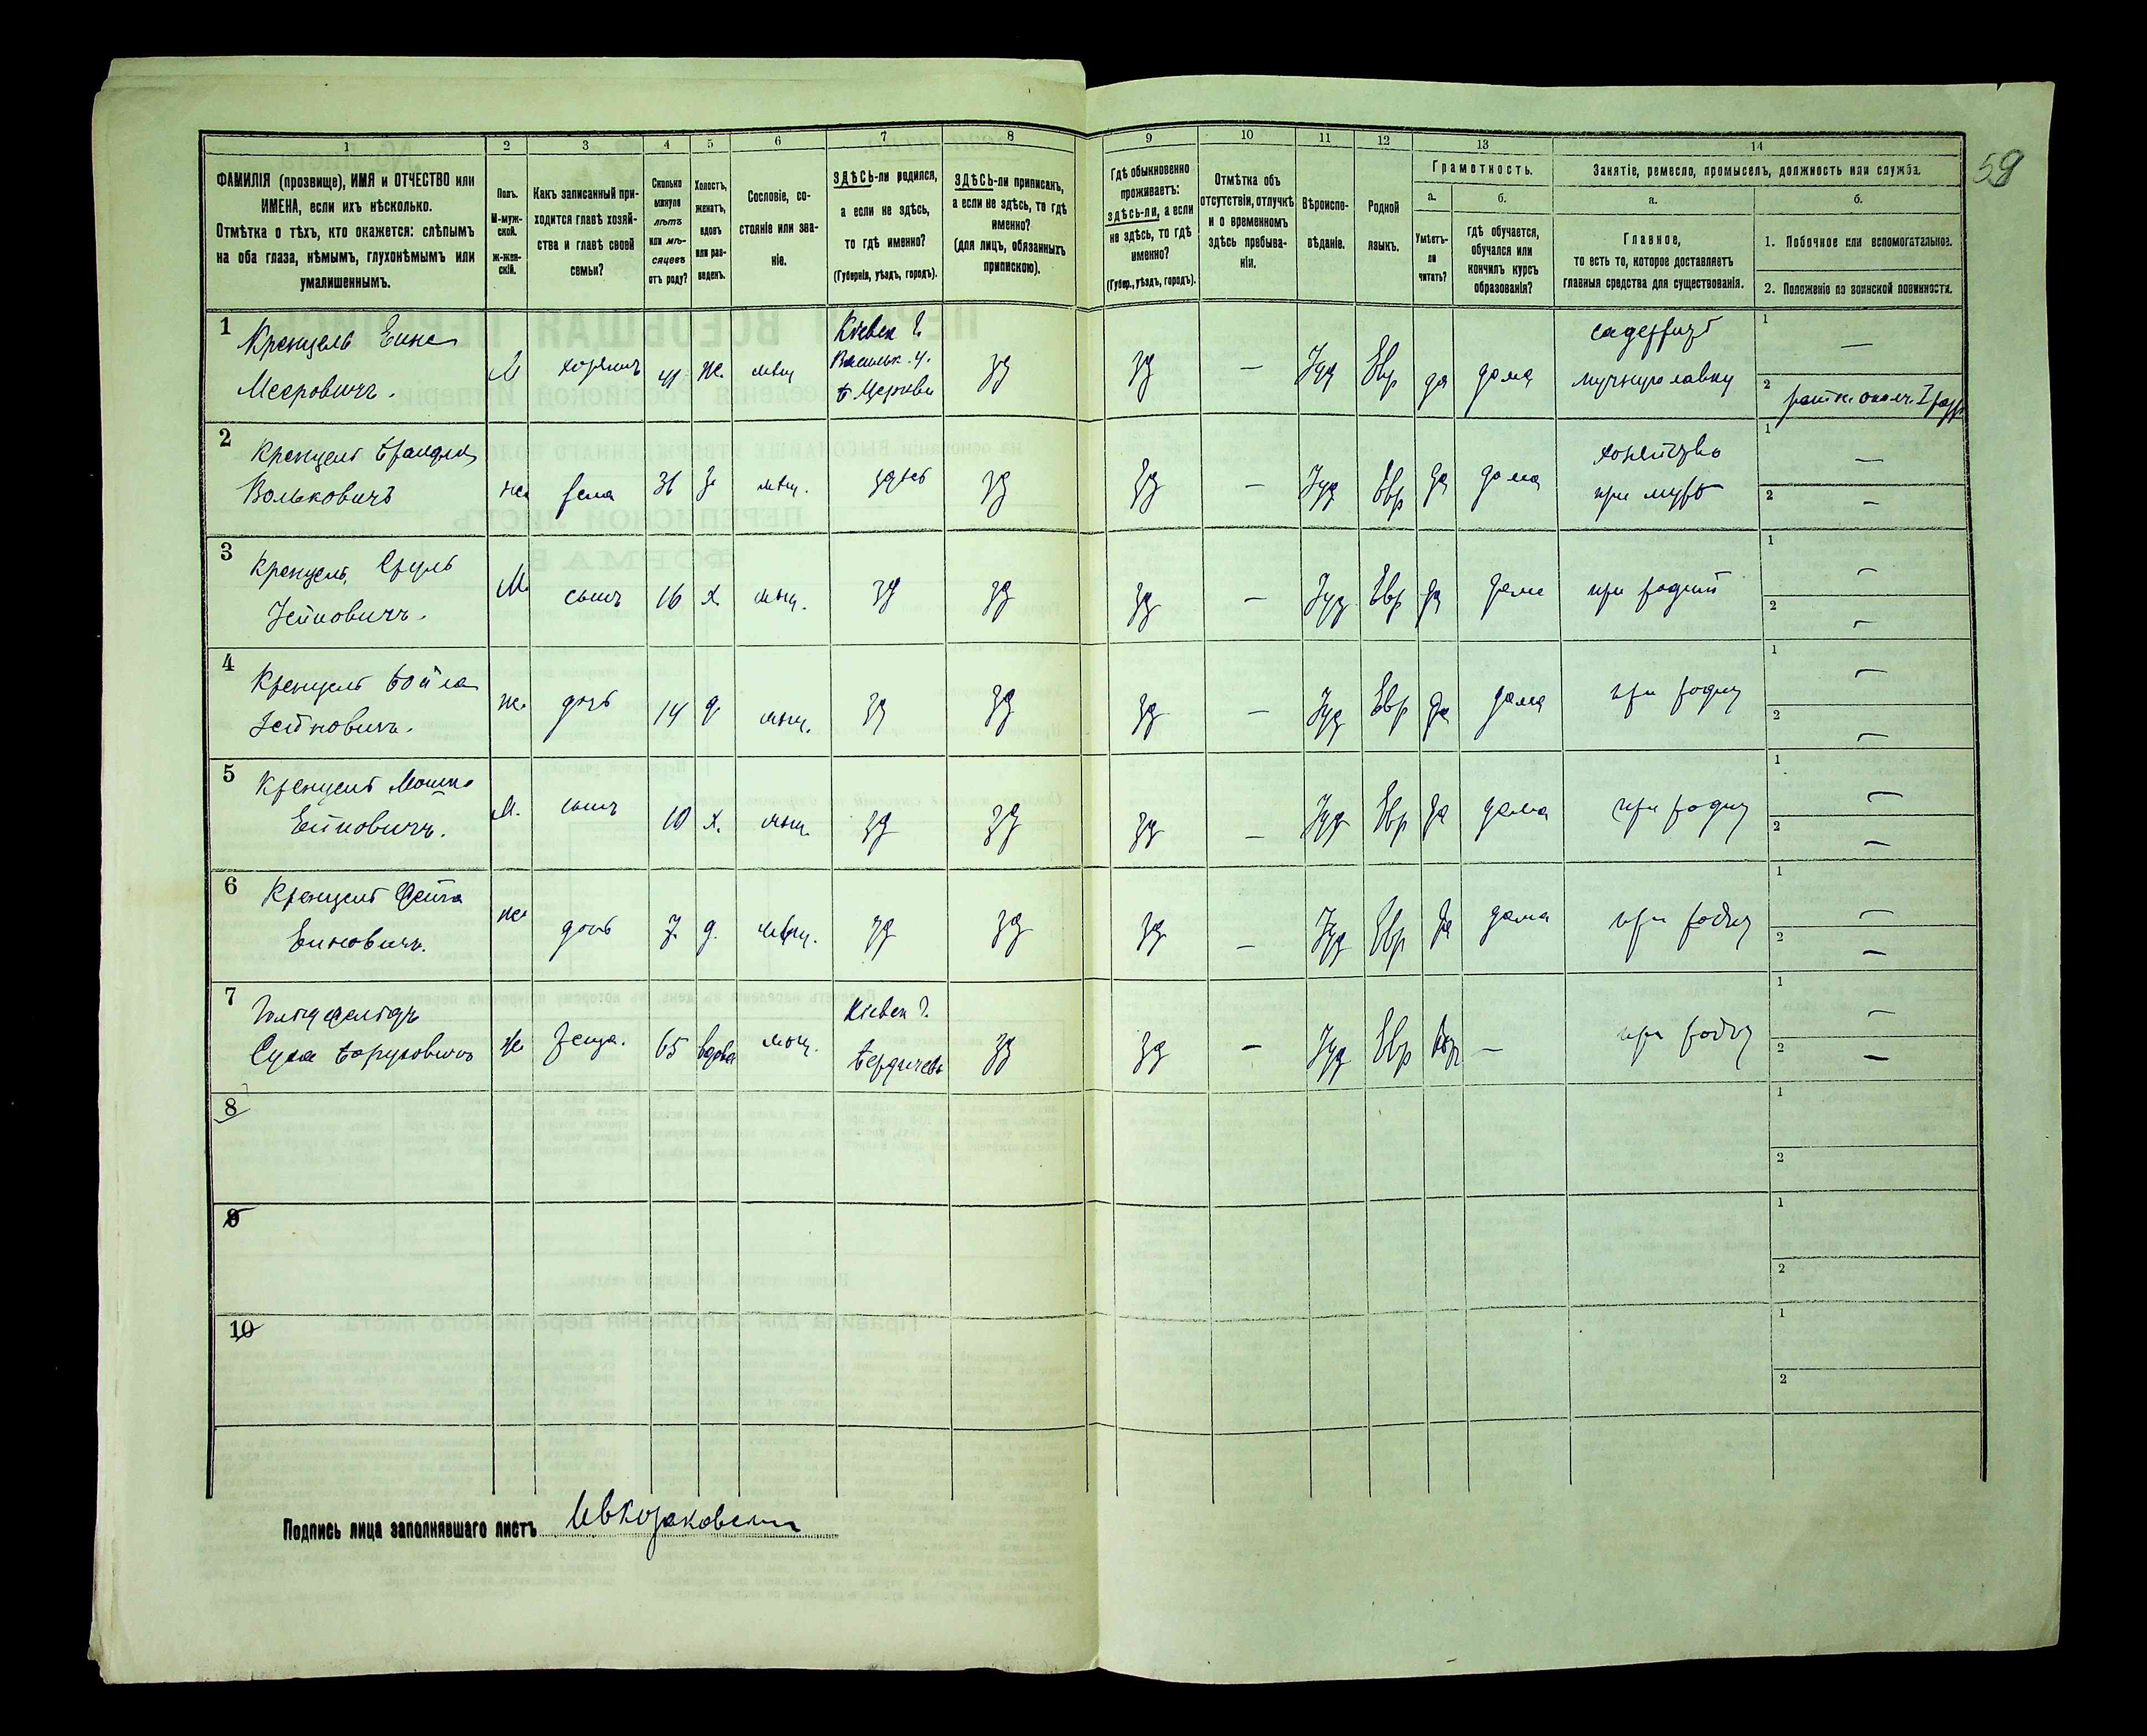 59
1 2 3 4 5 6 7 8 9 10 11 12 13 14
ФАМИЛІЯ (прозвище), ИМЯ и ОТЧЕСТВО или
ИМЕНА, если ихъ нѣсколько.
Отмѣтка о тѣхъ, кто окажется: слѣпымъ
на оба глаза, нѣмымъ, глухонѣмымъ или
умалишеннымъ.
Полъ.
М-муж-
ской.
Ж-жен-
скій.
Какъ записанный при-
ходится главѣ хозяй-
ства и главѣ своей
семьи?
Сколько
минуло
лѣтъ
или мѣ-
сяцевъ
отъ роду?
Холостъ,
женатъ,
вдовъ
или раз-
веденъ.
Сословіе, со-
стояніе или зва-
ніе.
ЗДѢСЬ-ли родился,
а если не здѣсь,
то гдѣ именно?
(Губернія, уѣздъ, городъ).
ЗДѢСЬ-ли приписанъ,
а если не здѣсь, то гдѣ
именно?
(для лицъ, обязанныхъ
припискою).
Гдѣ обыкновенно
проживаетъ:
здѣсь-ли, а если
не здѣсь, то гдѣ
именно?
(Губер., уѣздъ, городъ).
Отмѣтка объ
отсутствіи, отлучкѣ
и о временномъ
здѣсь пребыва-
ніи.
Вѣроиспо-
вѣданіе.
Родной
языкъ.
Грамотность.
а.
Умѣетъ-
ли
читать?
б.
гдѣ обучается,
обучался или
кончилъ курсъ
образованія?
Занятіе, ремесло, промыселъ, должность или служба.
а.
Главное,
то есть то, которое доставляетъ
главныя средства для существованія.
б.
1. Побочное или вспомогательное.
2. Положеніе по воинской повинности.
1 Кренцель Еине
Мееровичъ.
М хозяинъ 41 ж. мѣщ
Кіевск г.
Васильк. у.
Б Церкви
зд зд — Іуд Евр да дома
содержитъ
мучную лавку
1 —
2
2 Кренцель Брандля
Вольковичъ
же жена 36 з мѣщ. здѣсь зд зд — Іуд Евр да дома
хозяйство
при мужѣ
1 —
2 —
3 Кренцель Сруль
Іейновичъ.
М. сынъ 16 х. мѣщ. зд зд зд — Іуд Евр да дома при родит
1 —
2 —
4 Кренцель Бейла
Іейновичъ.
же дочь 14 д мѣщ. зд зд зд — Іуд Евр да дома при родит
1 —
2 —
5 Кренцель Мошко
Ейновичъ.
М. сынъ 10 х. мѣщ. зд зд зд — Іуд Евр да дома при родит
1 —
2 —
6 Кренцель Фейга
Еиновичъ.
же дочь 7 д. мѣщ. зд зд зд — Іуд Евр да дома при родит
1 —
2 —
7
Сура Боруховичъ
Ж теща. 65 вдова мѣщ.
Кіевск г.
Бердичевъ
зд зд — Іуд Евр — при
1 —
2 —
8
1
2
9
1
2
10
1
2
Подпись лица заполнявшаго листъ